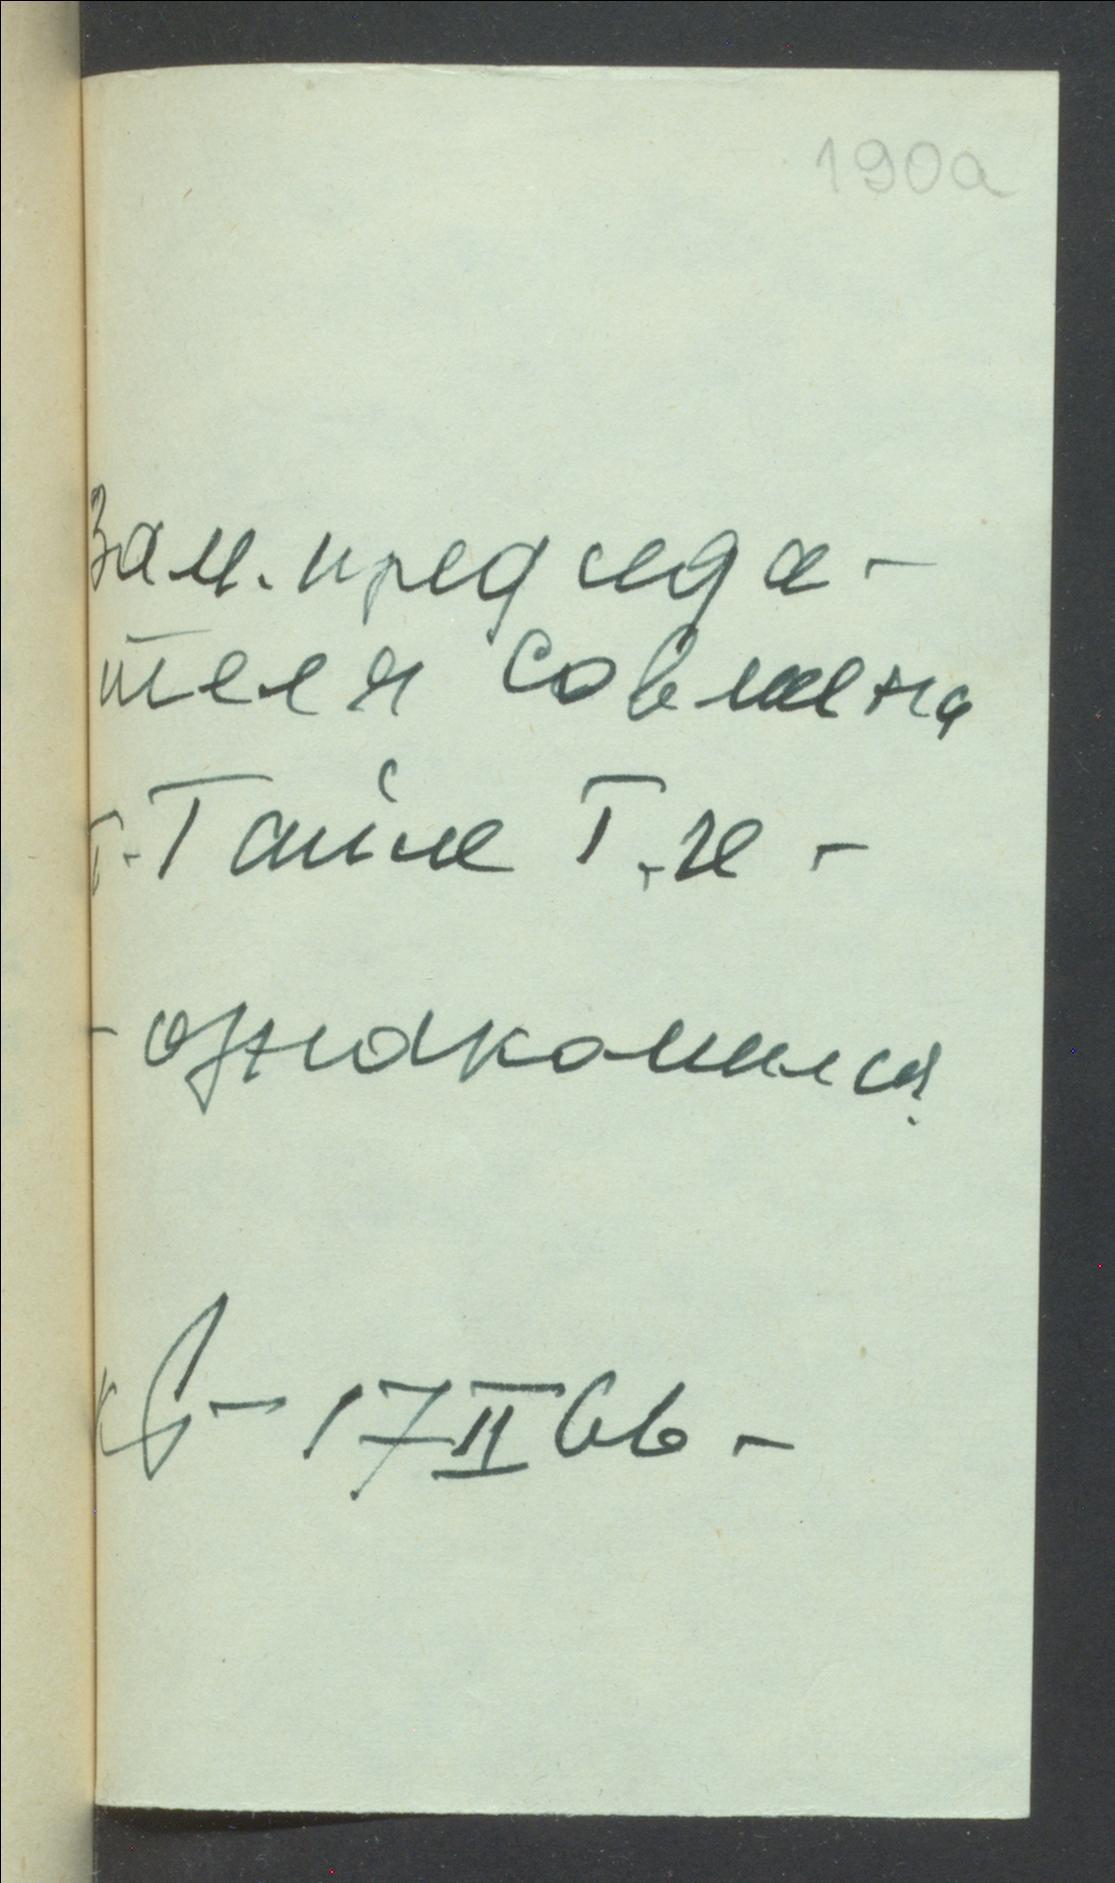 190а
Зам. председа-
теля Совмина
т. Гайле Г.И -
- ознакомился.
17 II 66 -